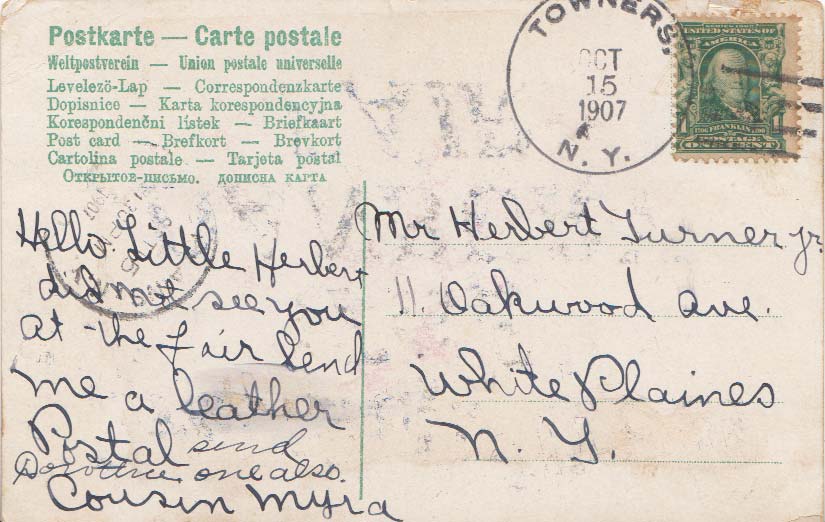 Postkarte — Carte postale
Weltpostverein — Union postale universelle
Levelező-Lap — Correspondenzkarte
Dopisnice — Karta korespondencyjna
Korespondenční lístek — Briefkaart
Post card — Brefkort — Brevkort
Cartolina postale — Tarjeta postal
Открытое-письмо. дописна карта
TOWNERS,
OCT
15
1907
N. Y.
SERIES 1902
UNITED STATES OF
AMERICA
1706 FRANKLIN 1790
POSTAGE
1 ONE CENT 1
Hello Little Herbert
did not see you
at the fair Send
me a leather
Postal send
Dorothie one also.
Cousin Myra
Mr Herbert Turner jr.
11 Oakwood Ave.
White Plaines
N. Y.